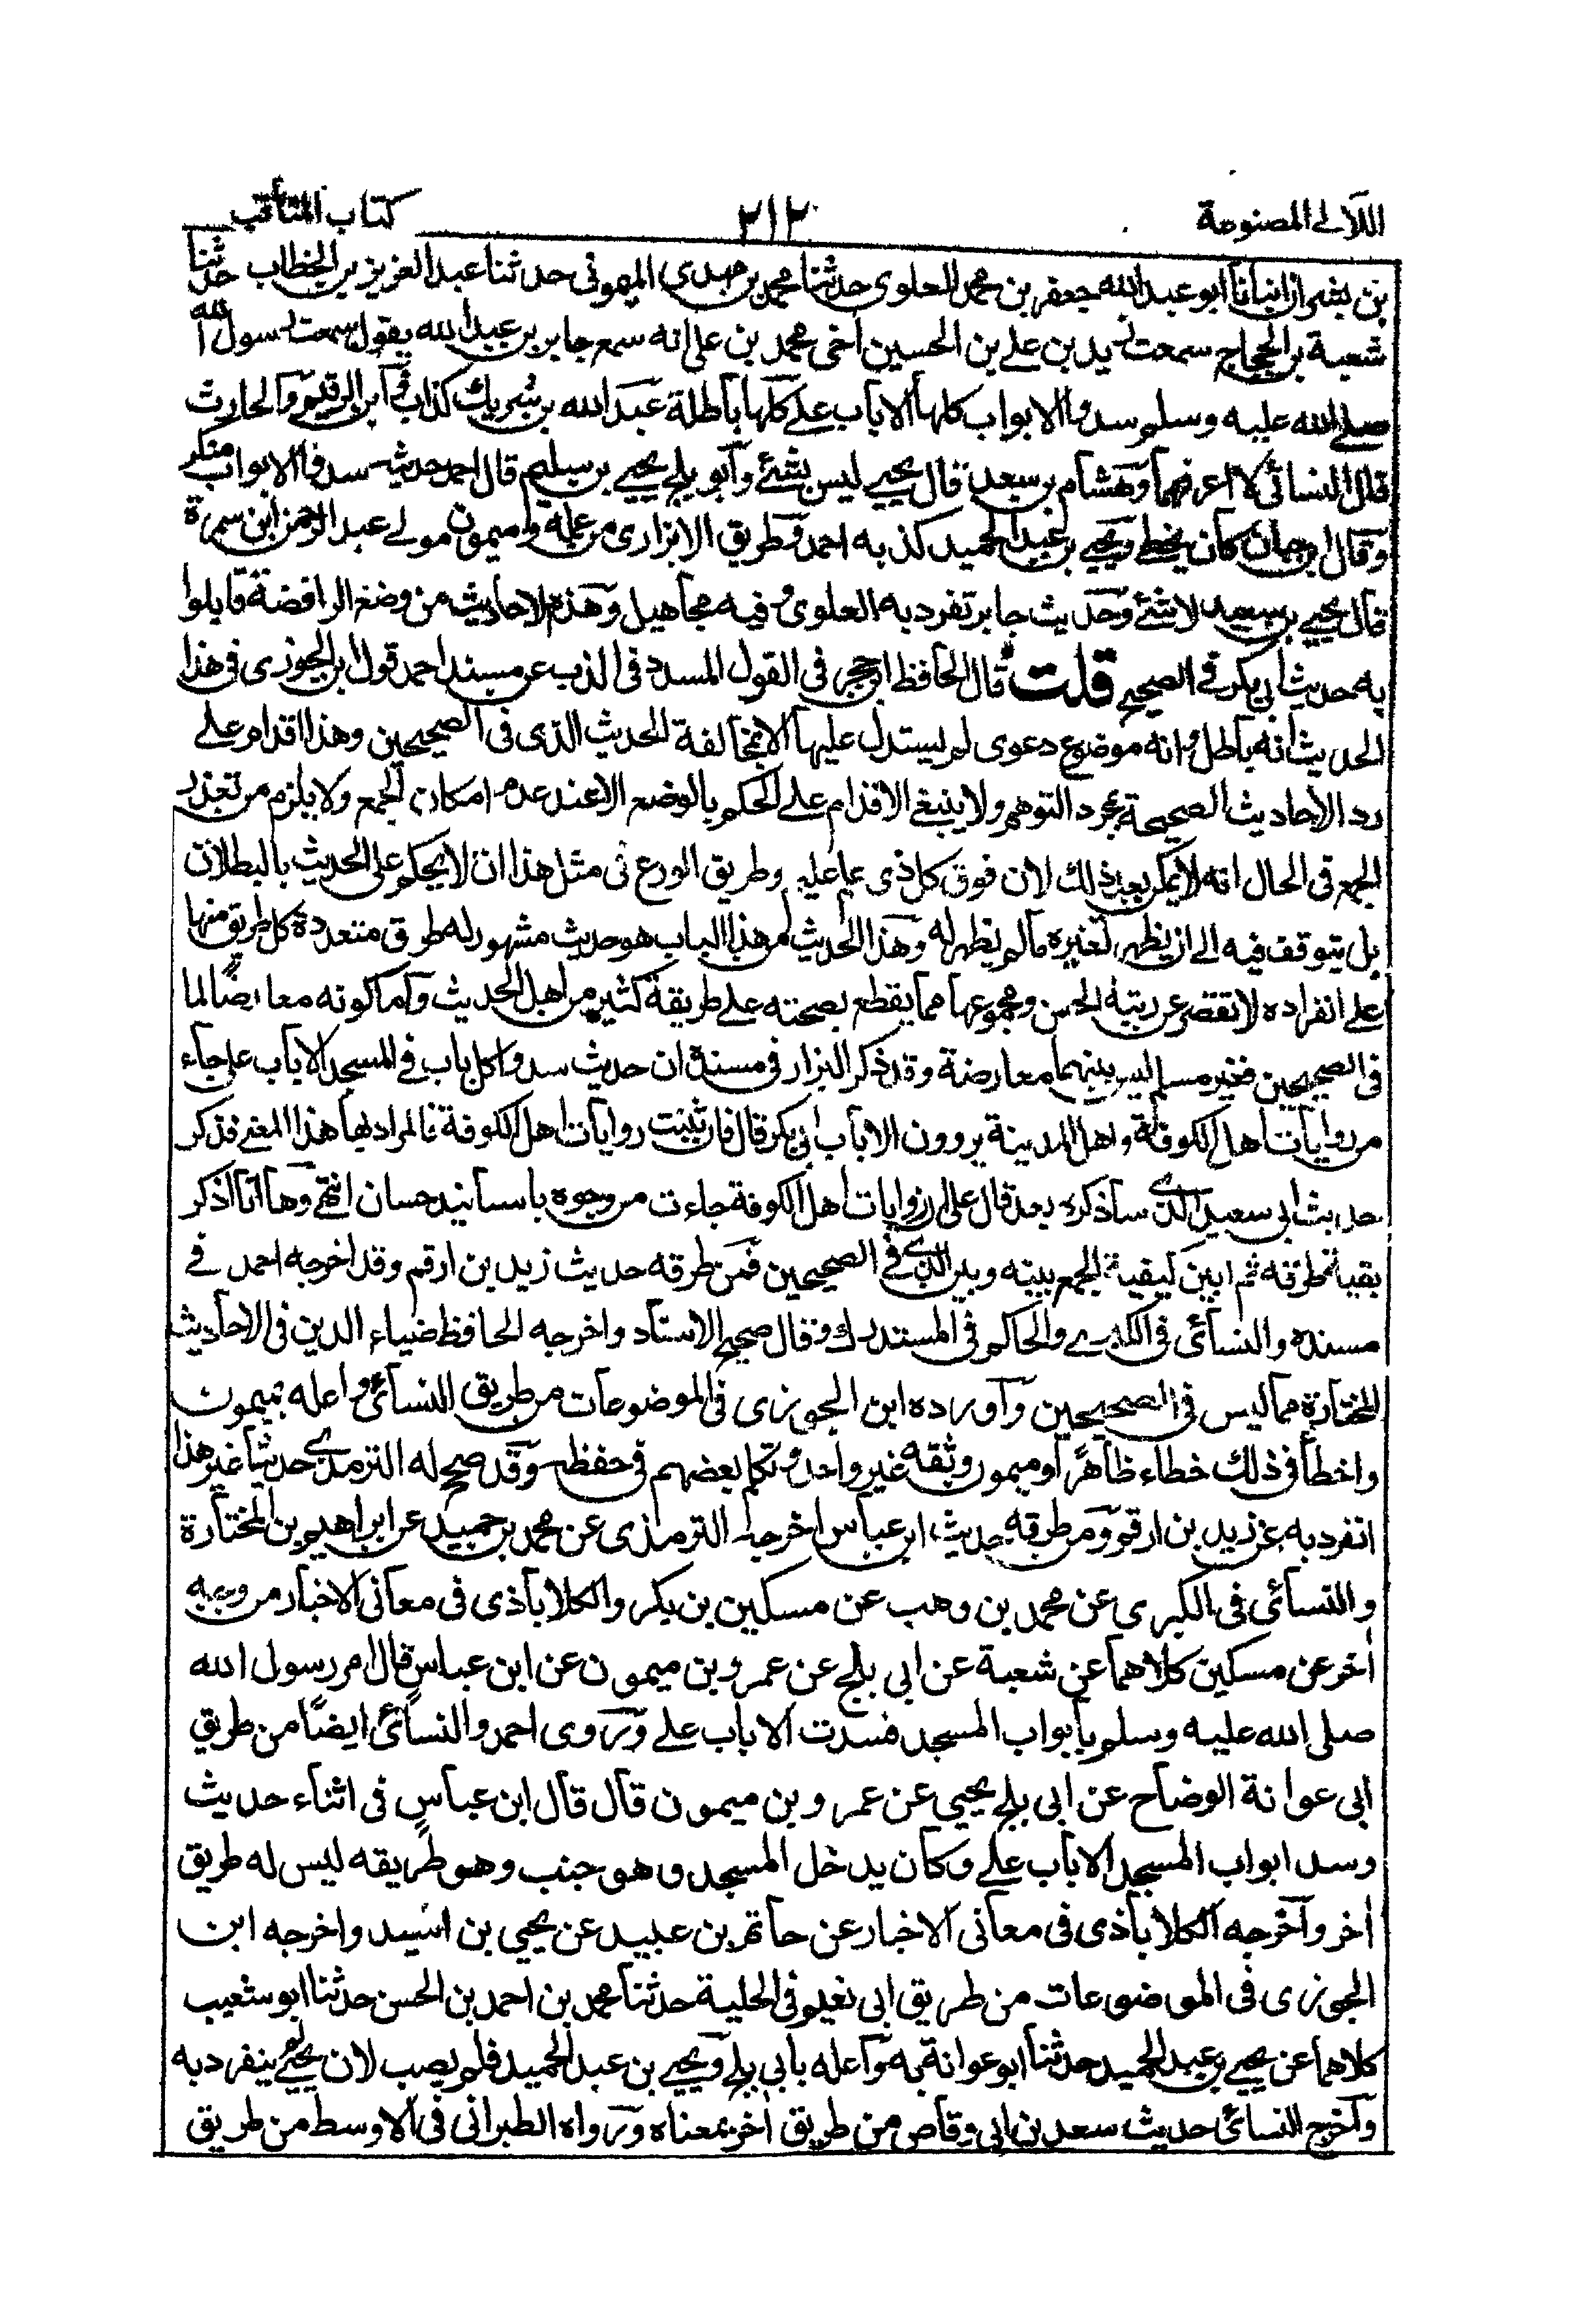 اللآلى المصنوعة
٢١٢
كتاب المناقب
بن بشران انبأنا ابو عبد الله جعفر بن محمد العلوى حدثنا محمد بن مهدى الميمونى حدثنا عبد العزيز بن الخطاب حدثنا
شعبة بن الحجاج سمعت زيد بن على بن الحسين اخى محمد بن على انه سمع جابر بن عبد الله يقول سمعت رسول الله
صلى الله عليه وسلم سدوا الابواب كلها الا باب على كلها باطلة عبد الله بن شريك كذاب وابن الرقيم والحارث
قال النسائى لا اعرفهما وهشام بن سعد قال يحيى ليس بشئ وابو بلج يحيى بن سليم قال احمد حديث سدوا الابواب منكر
وقال ابن حبان كان يخطى ويحيى بن عبد الحميد كذبه احمد وطريق الابزارى من عمله وميمون مولى عبد الرحمن ابن سمرة
قال يحيى بن سعيد لا شئ وحديث جابر تفرد به العلوى وفيه مجاهيل وهذه الاحاديث من وضع الرافضة قابلوا
به حديث ابى بكر فى الصحيح قلت قال الحافظ ابن حجر فى القول المسدد فى الذب عن مسند احمد قول ابن الجوزى فى هذا
الحديث انه باطل وانه موضوع دعوى لم يستدل عليها الا بمخالفة الحديث الذى فى الصحيحين وهذا اقدام على
رد الاحاديث الصحيحة بمجرد التوهم ولا ينبغى الاقدام على الحكم بالوضع الا عند عدم امكان الجمع ولا يلزم من تعذر
الجمع فى الحال انه لا يمكن بعد ذلك لان فوق كل ذى علم عليم وطريق الورع فى مثل هذا ان لا يحكم على الحديث بالبطلان
بل يتوقف فيه الى ان يظهر لغيره ما لم يظهر له وهذا الحديث من هذا الباب هو حديث مشهور له طرق متعددة كل طريق منها
على انفراده لا تقصر عن رتبة الحسن ومجموعها مما يقطع بصحته على طريقة كثير من اهل الحديث واما كونه معارضا لما
فى الصحيحين فغير مسلم ليس بينهما معارضة وقد ذكر البزار فى مسنده ان حديث سدوا كل باب فى المسجد الا باب على جاء
من روايات اهل الكوفة واهل المدينة يروون الا باب ابى بكر قال فان ثبتت روايات اهل الكوفة فالمراد بها هذا المعنى فذكر
حديث ابى سعيد الذى سأذكره بعد قال على ان روايات اهل الكوفة جاءت من وجوه باسانيد حسان انتهى وها انا اذكر
بقية طرقه ثم ابين كيفية الجمع بينه وبين الذى فى الصحيحين فمن طرقه حديث زيد بن ارقم وقد اخرجه احمد فى
مسنده والنسائى فى الكبرى والحاكم فى المستدرك وقال صحيح الاسناد واخرجه الحافظ ضياء الدين فى الاحاديث
المختارة مما ليس فى الصحيحين واورده ابن الجوزى فى الموضوعات من طريق النسائى واعله بميمون
واخطأ فى ذلك خطاء ظاهرا وميمون وثقه غير واحد وتكلم بعضهم فى حفظه وقد صحح له الترمذى حديثا غير هذا
انفرد به عن زيد بن ارقم ومن طرقه حديث ابن عباس اخرجه الترمذى عن محمد بن حميد عن ابراهيم بن المختارة
والنسائى فى الكبرى عن محمد بن وهب عن مسكين بن بكر والكلاباذى فى معانى الاخبار من وجه
اخر عن مسكين كلاهما عن شعبة عن ابى بلج عن عمرو بن ميمون عن ابن عباس قال امر رسول الله
صلى الله عليه وسلم بابواب المسجد فسدت الا باب على وروى احمد والنسائى ايضا من طريق
ابى عوانة الوضاح عن ابى بلج يحيى عن عمرو بن ميمون قال قال ابن عباس فى اثناء حديث
وسد ابواب المسجد الا باب على وكان يدخل المسجد وهو جنب وهو طريقه ليس له طريق
اخر واخرجه الكلاباذى فى معانى الاخبار عن حاتم بن عبيد عن يحيى بن اسيد واخرجه ابن
الجوزى فى الموضوعات من طريق ابى نعيم فى الحلية حدثنا محمد بن احمد بن الحسن حدثنا ابو شعيب
كلاهما عن يحيى بن عبد الحميد حدثنا ابو عوانة به واعله بابى بلج ويحيى بن عبد الحميد فلم يصب لان يحيى ينفرد به
واخرج النسائى حديث سعد بن ابى وقاص من طريق اخر بمعناه ورواه الطبرانى فى الاوسط من طريق